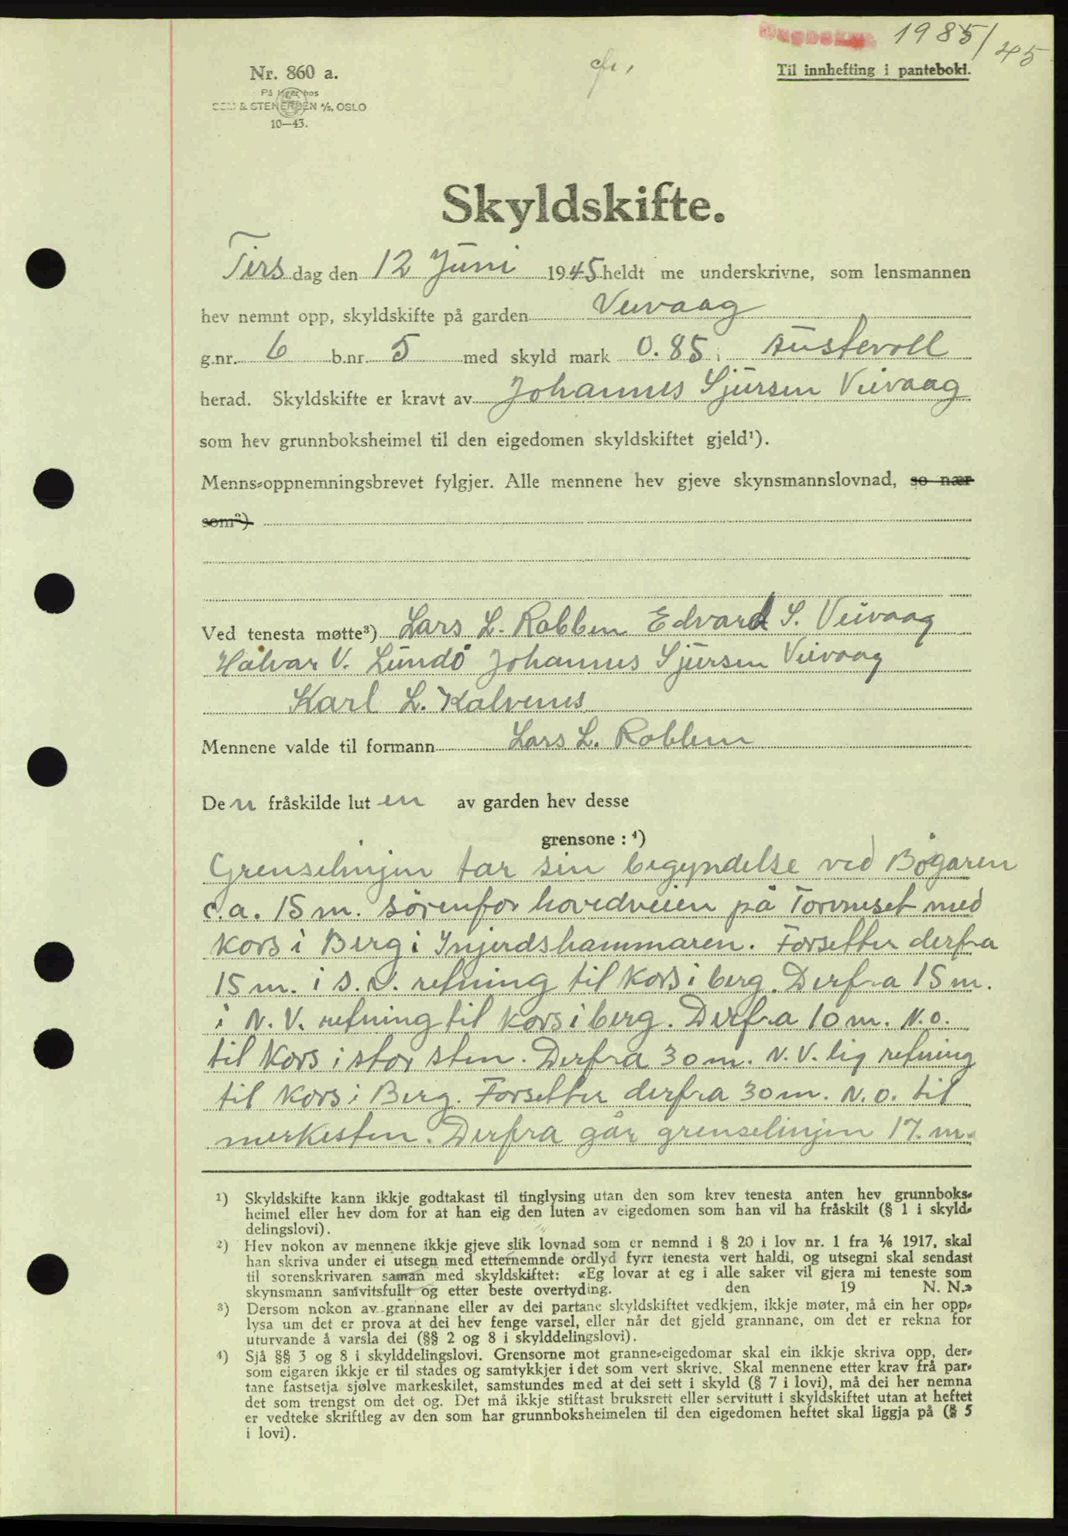 Dagboknr. 1985/45
Til innhefting i panteboki.
Nr. 860 a.
På lager hos
SEM & STENERSEN A/S, OSLO
10—43.
Skyldskifte.
Tirsdag den 12 Juni 1945 heldt me underskrivne, som lensmannen
hev nemnt opp, skyldskifte på garden Veivaag
g.nr. 6 b.nr. 5 med skyld mark 0.85 i Austevoll
herad. Skyldskifte er kravt av Johannes Sjursen Veivaag
som hev grunnboksheimel til den eigedomen skyldskiftet gjeld¹).
Menns-oppnemningsbrevet fylgjer. Alle mennene hev gjeve skynsmannslovnad, so nær
som²)
Ved tenesta møtte³) Lars L. Rabben Edvard S. Veivaag
Halvar V. Lundö Johannes Sjursen Veivaag
Karl L. Kalvenes
Mennene valde til formann Lars L. Rabben
Den fråskilde lut en av garden hev desse
grensone : ⁴)
Grenselinjen tar sin begyndelse ved Bøgaren
c.a. 15 m. sørenfor hovedveien på Torvneset med
kors i Berg i Injerdshammaren. Forsetter derfra
15 m. i S.V. retning til kors i berg. Derfra 15 m.
i N.V. retning til kors i berg. Derfra 10 m. N.O.
til kors i stor sten. Derfra 30 m. N.V. lig retning
til kors i Berg. Forsetter derfra 30 m. N.O. til
merkesten. Derfra går grenselinjen 17. m.
¹) Skyldskifte kann ikkje godtakast til tinglysing utan den som krev tenesta anten hev grunnboks-
heimel eller hev dom for at han eig den luten av eigedomen som han vil ha fråskilt (§ 1 i skyld-
delingslovi).
²) Hev nokon av mennene ikkje gjeve slik lovnad som er nemnd i § 20 i lov nr. 1 fra 1/6 1917, skal
han skriva under ei utsegn med etternemnde ordlyd fyrr tenesta vert haldi, og utsegni skal sendast
til sorenskrivaren saman med skyldskiftet: «Eg lovar at eg i alle saker vil gjera mi teneste som
skynsmann samvitsfullt og etter beste overtyding. den 19 N. N.»
³) Dersom nokon av grannane eller av dei partane skyldskiftet vedkjem, ikkje møter, må ein her opp-
lysa um det er prova at dei hev fenge varsel, eller når det gjeld grannane, om det er rekna for
uturvande å varsla dei (§§ 2 og 8 i skylddelingslovi).
⁴) Sjå §§ 3 og 8 i skylddelingslovi. Grensorne mot granne-eigedomar skal ein ikkje skriva opp, der-
som eigaren ikkje er til stades og samtykkjer i det som vert skrive. Skal mennene etter krav frå par-
tane fastsetja sjølve markeskilet, samstundes med at dei sett i skyld (§ 7 i lovi), må dei her nemna
det som trengst om det og. Det må ikkje stiftast bruksrett eller servitutt i skyldskiftet utan at heftet
er vedteke skriftleg av den som har grunnboksheimelen til den eigedomen heftet skal liggja på (§ 5
i lovi).